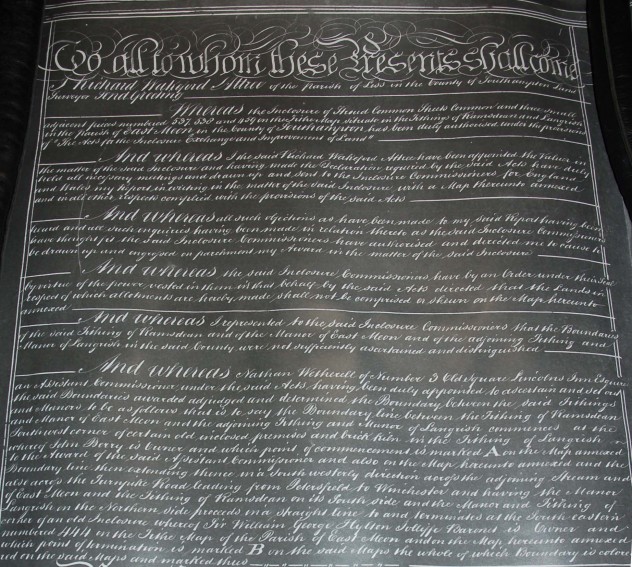 To all to whom these Presents shall come
I Richard Wakeford Attree of the Parish of Liss in the County of Southampton Land
Surveyor Send Greeting
Whereas the Inclosure of Froud Common Sheets Common and three small
adjacent pieces numbered 527, 530 and on the Tithe Map situate in the Tithings of Ramsdean and Langrish
in the parish of East Meon in the County of Southampton has been duly authorised under the provisions
of "The Acts for the Inclosure Exchange and Improvement of Land"
And whereas I the said Richard Wakeford Attree have been appointed the Valuer in
the matter of the said Inclosure and having made the Declaration required by the said Acts have duly
held all necessary meetings and drawn up and sent to the Inclosure Commissioners for England
and Wales my Report in writing in the matter of the said Inclosure with a Map thereunto annexed
and in all other respects complied with the provisions of the said Acts
And whereas all such objections as have been made to my said Report having been
heard and all such inquiries having been made in relation thereto as the said Inclosure Commissioners
have thought fit the said Inclosure Commissioners have authorised and directed me to cause to
be drawn up and engrossed on parchment my Award in the matter of the said Inclosure
And whereas the said Inclosure Commissioners have by an Order under their Seal
by virtue of the power vested in them in that behalf by the said Acts directed that the Lands in
respect of which allotments are hereby made shall not be comprised or shewn on the Map hereunto
annexed
And whereas I represented to the said Inclosure Commissioners that the Boundaries
of the said Tithing of Ramsdean and of the Manor of East Meon and of the adjoining Tithing and
Manor of Langrish in the said County were not sufficiently ascertained and distinguished
And whereas Nathan Wetherell of Number 3 Old Square Lincolns Inn Esquire
an Assistant Commissioner under the said Acts having been duly appointed to ascertain and set out
the said Boundaries awarded adjudged and determined the Boundary between the said Tithings
and Manors to be as follows that is to say the Boundary line between the Tithing of Ramsdean
and Manor of East Meon and the adjoining Tithing and Manor of Langrish commences at the
Southwest corner of certain old inclosed premises and brick kiln in the Tithing of Langrish
whereof John Berry is Owner and which point of commencement is marked A on the Map annexed
to the Award of the said Assistant Commissioner and also on the Map hereunto annexed and the
Boundary line then extending thence in a South westerly direction across the adjoining Stream and
also across the Turnpike Road leading from Petersfield to Winchester and having the Manor
of East Meon and the Tithing of Ramsdean on its South side and the Manor and Tithing of
Langrish on the Northern side proceeds in a straight line to and terminates at the South eastern
corner of an old Inclosure whereof Sir William George Hylton Jolliffe Baronet is Owner and
numbered 444 on the Tithe Map of the Parish of East Meon and on the Map hereunto annexed
which point of termination is marked B on the said Maps the whole of which Boundary is colored
red on the said Maps and marked thus